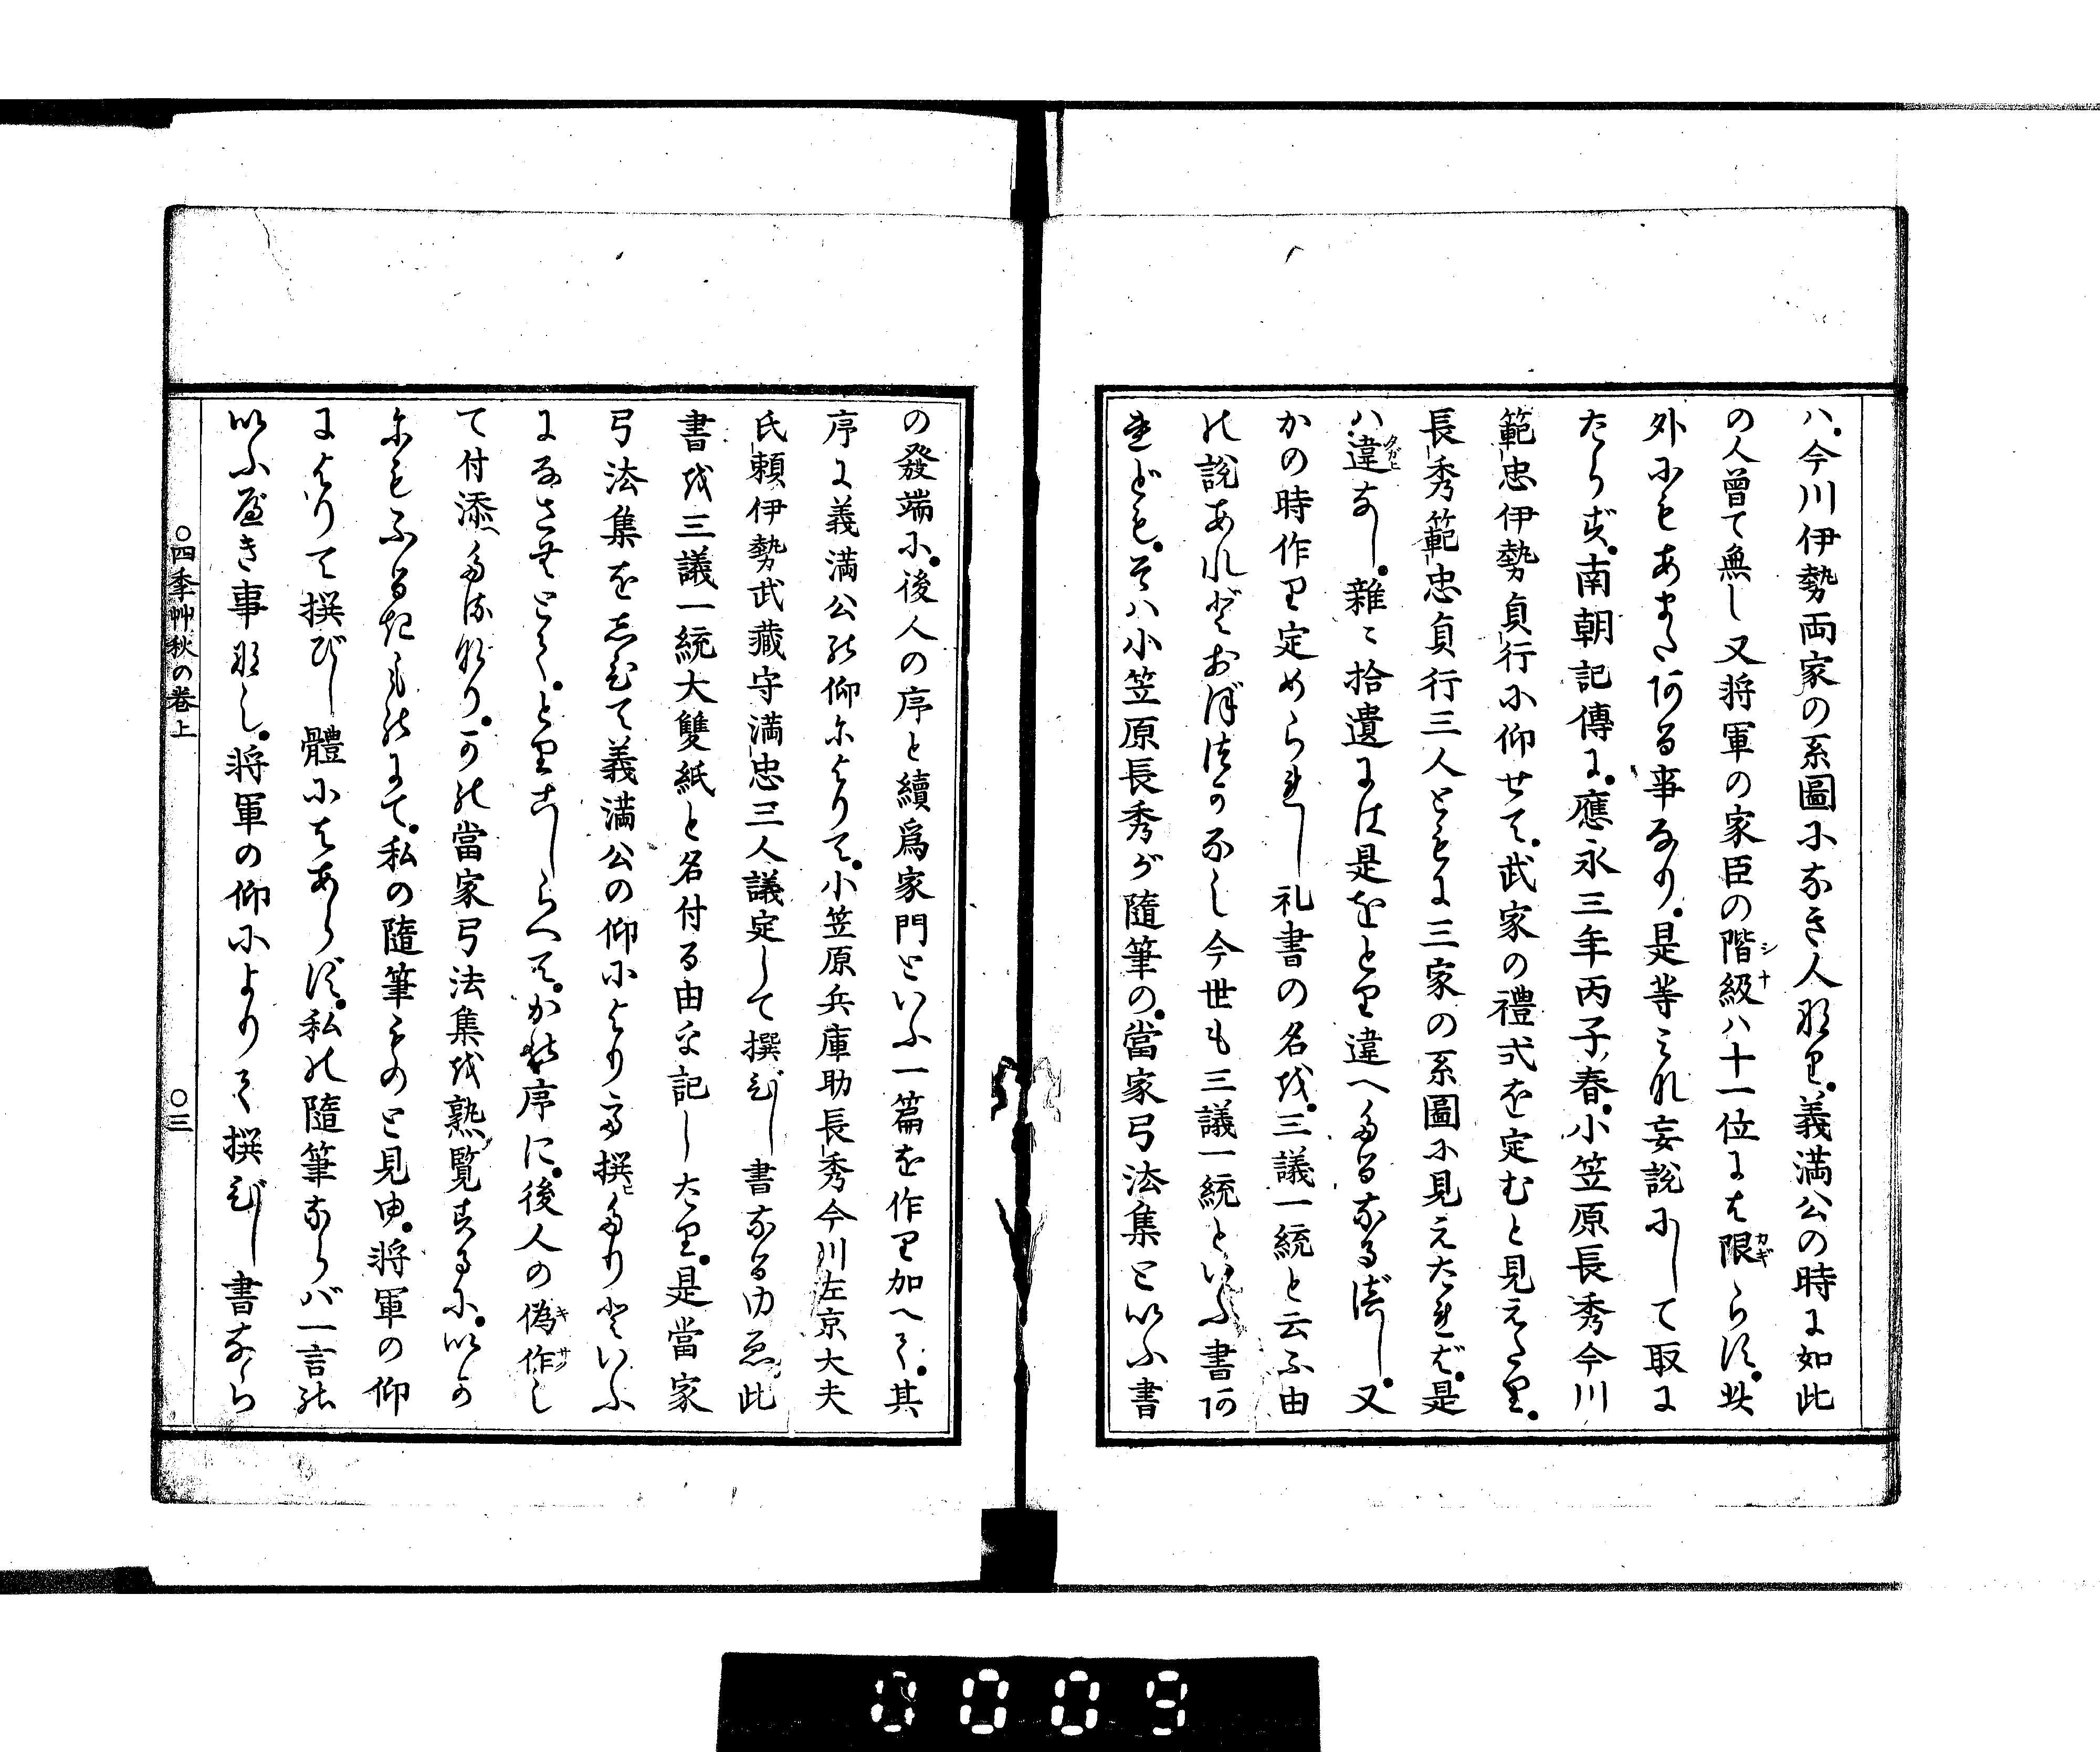 ハ。今川伊勢両家の系圖になき人なり。義満公の時に如此
の人曽て無し又将軍の家臣の階級ハ十一位には限らず。此
外にもあまた阿る事なり。是等みな妄説にして取に
たらず。南朝記傳に。應永三年丙子春。小笠原長秀今川
範忠伊勢貞行に仰せて。武家の禮式を定むと見えたり。
長秀範忠貞行三人ともに三家の系圖に見えたれば。是
ハ違なし。雑々拾遺には是をとり違へたるなるべし。又
かの時作り定められし礼書の名を。三議一統と云ふ由
の説あれどおぼつかなし今世も三議一統といふ書阿
れども。そハ小笠原長秀が随筆の。當家弓法集といふ書
の發端に。後人の序と續為家門といふ一篇を作り加へて。其
序に義満公の仰によりて。小笠原兵庫助長秀今川左京大夫
氏頼伊勢武蔵守満忠三人議定して撰びし書なるゆゑ。此
書を三議一統大雙紙と名付る由を記したり。是當家
弓法集をしひて義満公の仰によりて撰ひたりといふ
になさむとて。とりこしらへて。かの序に。後人の偽作し
て付添へたる那り。かの當家弓法集を熟覧するに。いか
にもふるきものにて。私の随筆ものと見ゆ。将軍の仰
によりて撰びし體にはあらず。私の随筆ならバ一言の
いふべき事なし。将軍の仰によりて撰びし書ならら
〇四季艸秋の巻上
〇三
0009